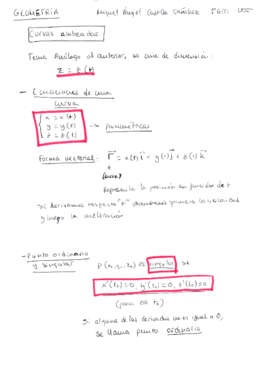 GEOMETRIA Miguel Ángel Castillo Sánchez 2º GITI
Curvas alabeadas
Tema Análogo al anterior, se cambia de dimensión:
z = z(t)
- Ecuaciones de una
curva
x = x(t)
y = y(t)
z = z(t)
→ paramétricas
Forma vectorial: r = x(t) i + y(t) j + z(t) k
(curva)
Representa la posición en función de t
Si derivamos respecto "t" obtendremos primero la velocidad
y luego la aceleración
- Punto ordinario
y singular
P(x₀, y₀, z₀) es singular si
x'(t₀)=0, y'(t₀)=0, z'(t₀)=0
(para un t₀)
Si alguna de las derivadas no es igual a 0,
se llama punto ordinario